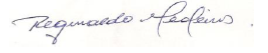 Reginaldo Medeiros.